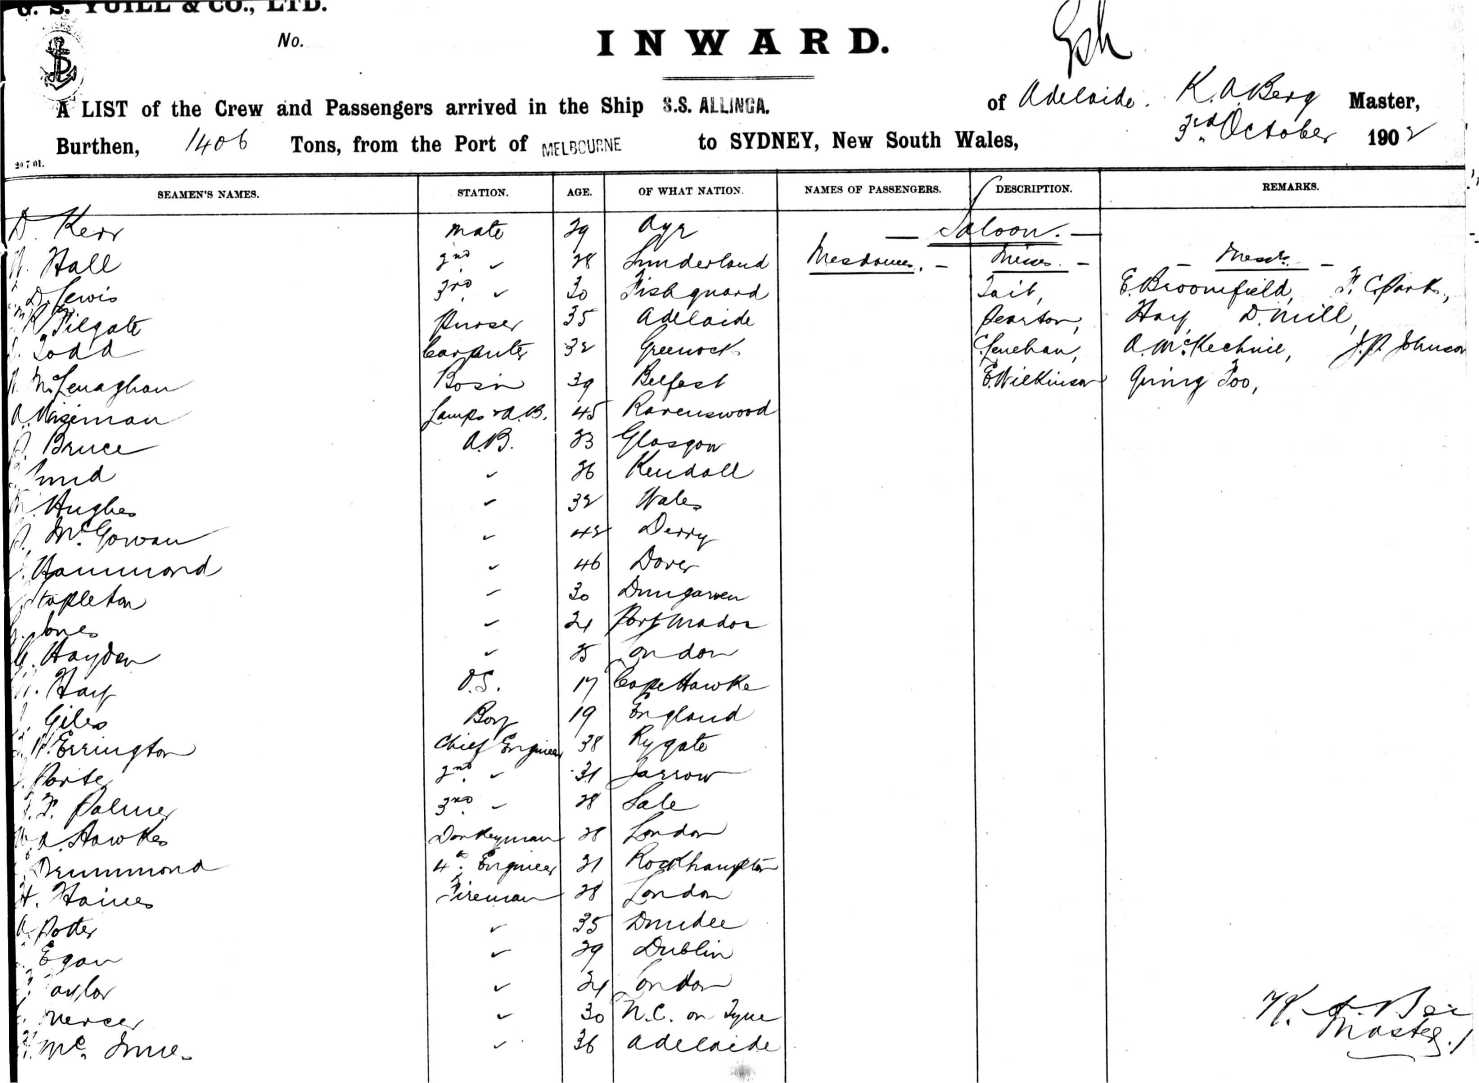 G. S. YUILL & CO., LTD.
No.
INWARD.
A LIST of the Crew and Passengers arrived in the Ship S.S. ALLINGA. of Adelaide. K. A. Berg Master,
Burthen, 1406 Tons, from the Port of MELBOURNE to SYDNEY, New South Wales, 3rd October 1902
20 7 01.
SEAMEN'S NAMES. STATION. AGE. OF WHAT NATION. NAMES OF PASSENGERS. DESCRIPTION. REMARKS.
D. Kerr Mate 29 Ayr — Saloon. —
Hall 2nd ✓ 28 Sunderland Mesdames. — Misses — — Messrs. —
Lewis 3rd ✓ 30 Fishguard Tait, E. Broomfield, F. C. Park,
Pilgate Purser 35 Adelaide Pearton, Hay D. Mill,
Todd Carpenter 32 Greenock Lenehan, A. McKechnie, J. P. Johnson
McLenaghan Bosn 39 Belfast E. Wilkinson Quing Foo,
A. Wiseman Lamps & A.B. 45 Ravenswood
Bruce A.B. 23 Glasgow
✓ 26 Kendall
Hughes ✓ 32 Wales
McGowan ✓ 42 Derry
Hammond ✓ 46 Dover
Stapleton ✓ 30 Dungarven
Jones ✓ 24 Port Madoc
G. Hayden ✓ 25 London
Hay O.S. 17 Cape Hawke
Giles Boy 19 England
Errington Chief Engineer 38 Rygate
Porter 2nd ✓ 31 Jarrow
F. Palmer 3rd ✓ 28 Sale
A. Hawkes Donkeyman 28 London
Drummond 4th Engineer 21 Rockhampton
H. Haines Fireman 28 London
Potter ✓ 35 Dundee
Egan ✓ 29 Dublin
Taylor ✓ 24 London
Mercer ✓ 30 N.C. on Tyne
McInnes ✓ 36 Adelaide
K. A. Ber
Master.